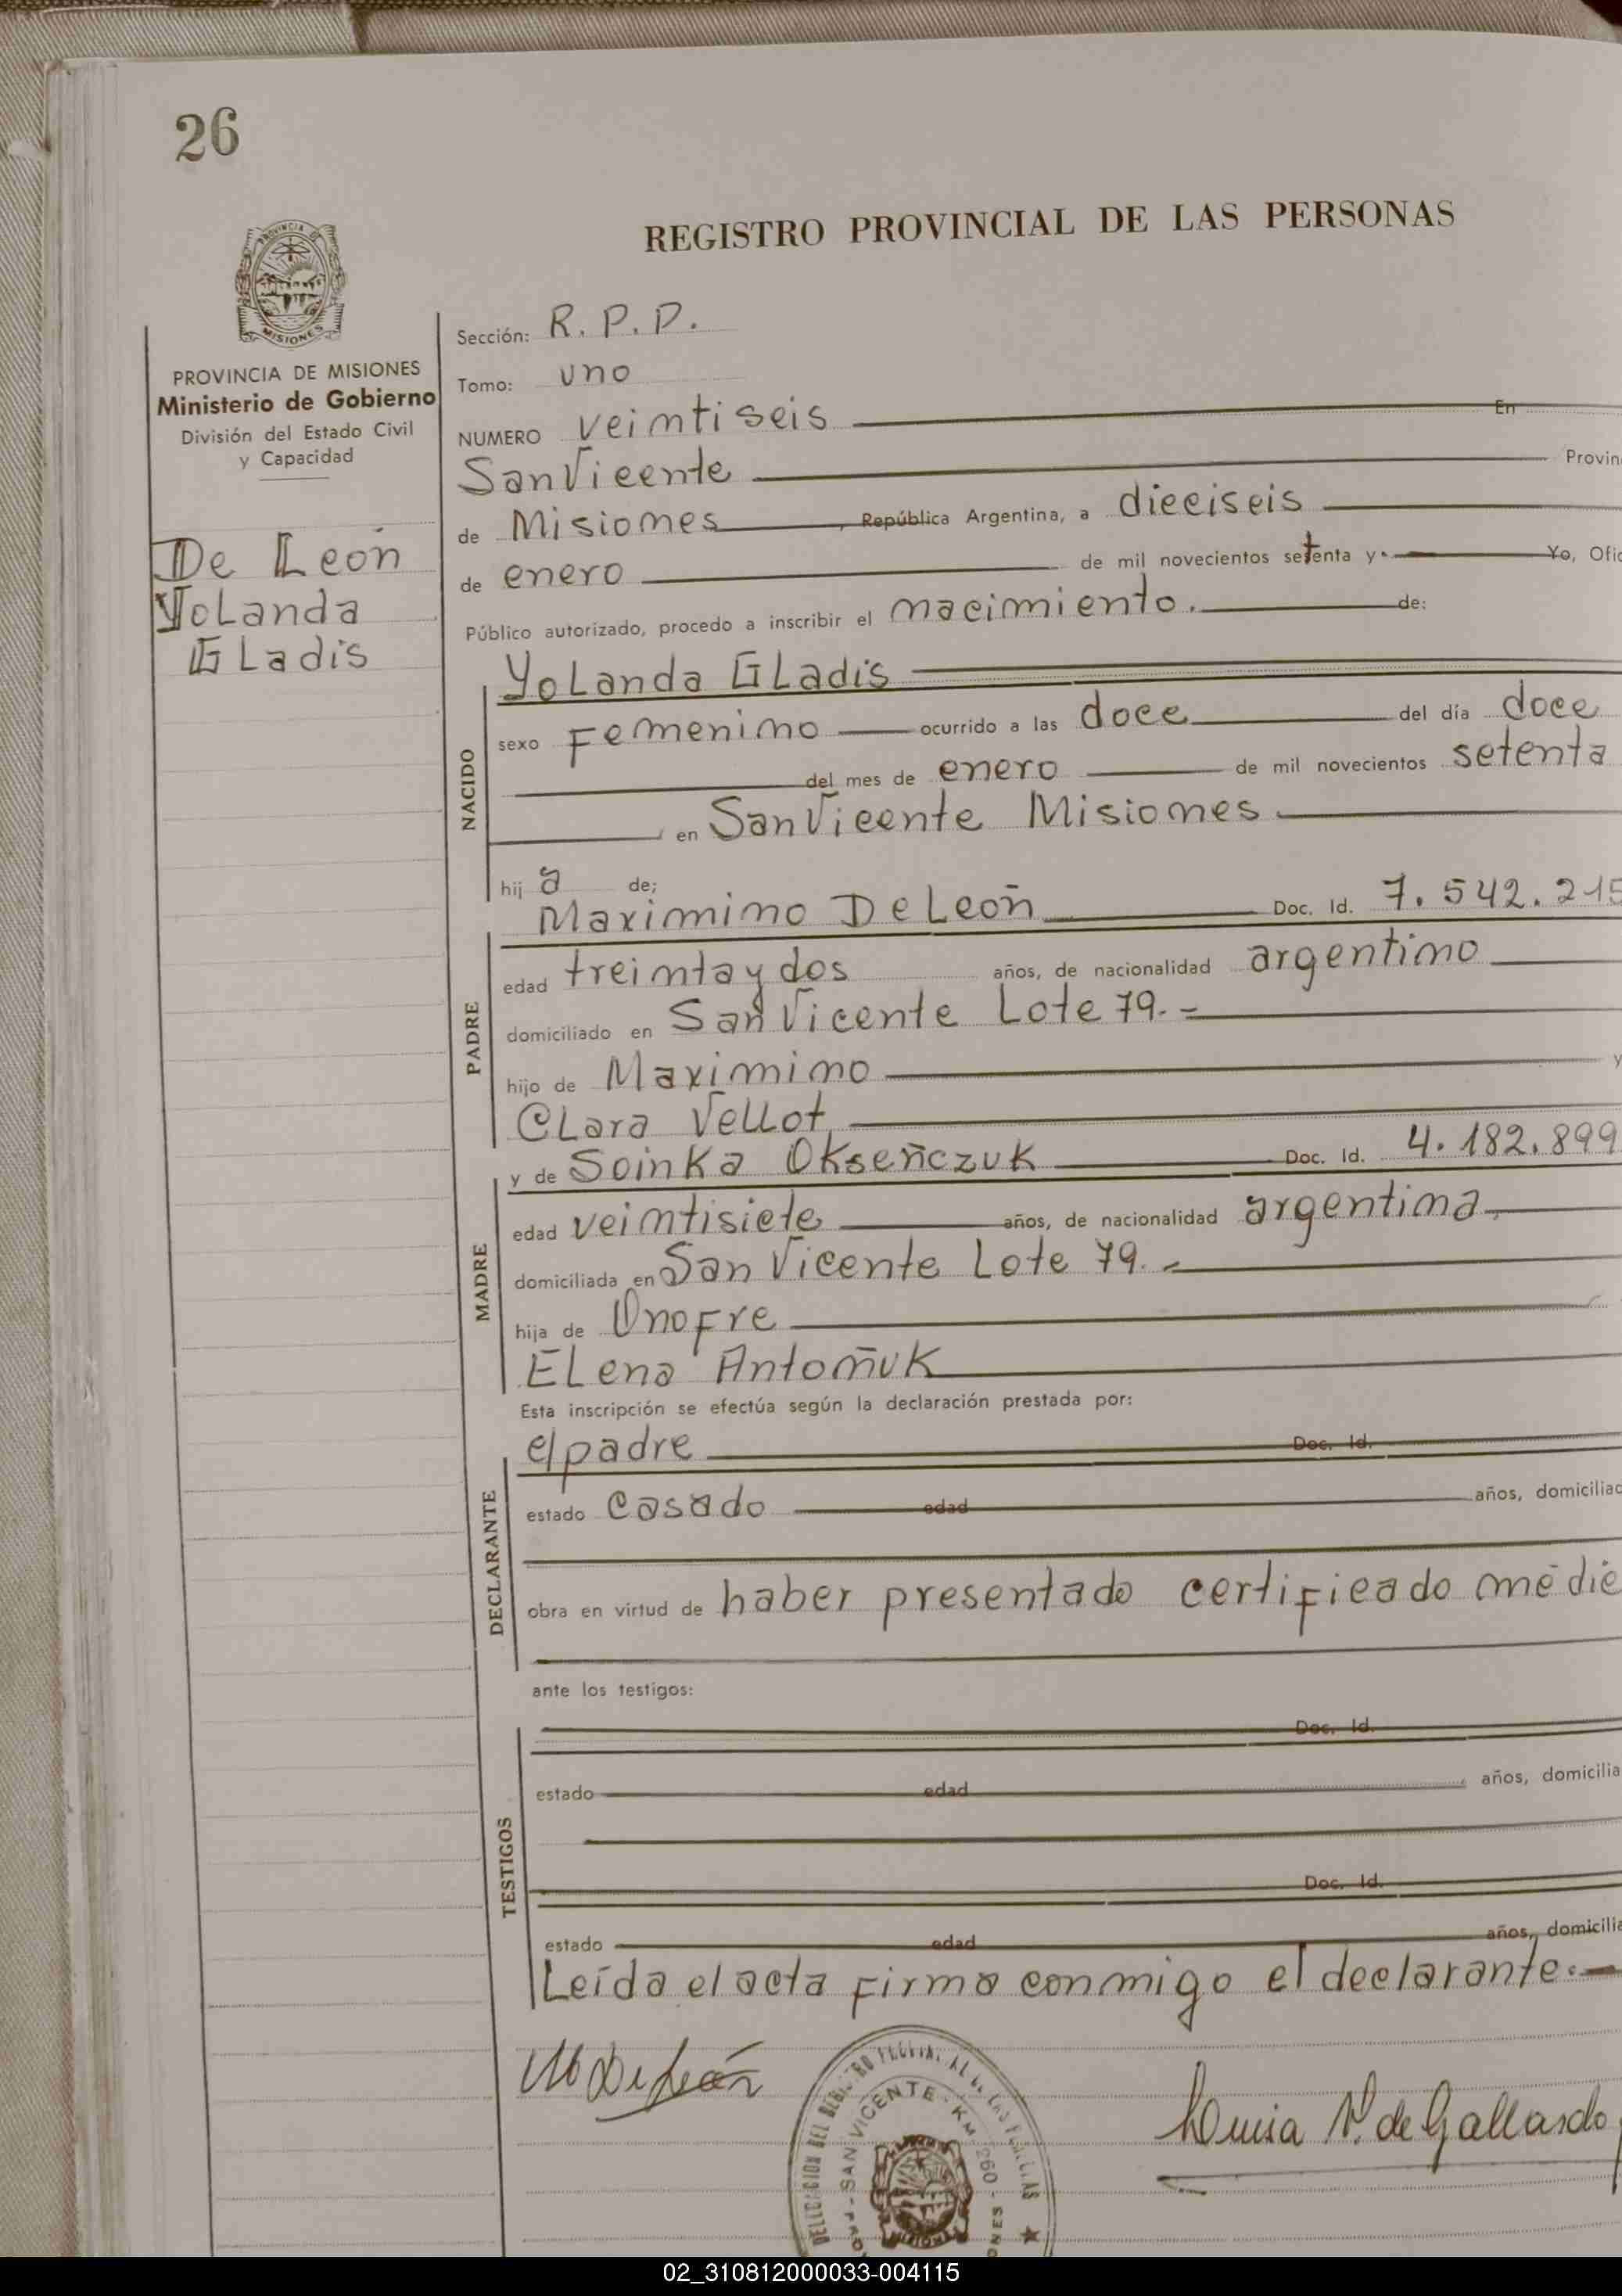 26
REGISTRO PROVINCIAL DE LAS PERSONAS
PROVINCIA DE MISIONES
Ministerio de Gobierno
División del Estado Civil
y Capacidad
De Leon
Yolanda
Gladis
Sección: R. P. P.
Tomo: uno
NUMERO veintiseis En
San Vicente Provin
de Misiones, República Argentina, a dieciseis
de enero de mil novecientos setenta y Yo, Ofic
Público autorizado, procedo a inscribir el nacimiento. de:
NACIDO
Yolanda Gladis
sexo Femenino ocurrido a las doce del día doce
del mes de enero de mil novecientos setenta
en San Vicente Misiones
hij a de;
PADRE
Maximino De León Doc. Id. 7.542.215
edad treinta y dos años, de nacionalidad argentino
domiciliado en San Vicente Lote 79.-
hijo de Maximino y
Clara Vellot
MADRE
y de Soinka Okseñczuk Doc. Id. 4.182.899
edad veintisiete años, de nacionalidad argentina
domiciliada en San Vicente Lote 79.-
hija de Onofre
Elena Antoñuk
Esta inscripción se efectúa según la declaración prestada por:
DECLARANTE
el padre Doc. Id.
estado casado edad años, domiciliad
obra en virtud de haber presentado certificado médic
ante los testigos:
TESTIGOS
Doc. Id.
estado edad años, domicilia
Doc. Id.
estado edad años, domicilia
Leída el acta firma conmigo el declarante.-
M De León
Luisa V. de Gallardo
SAN VICENTE - KM 260 -
02_310812000033-004115